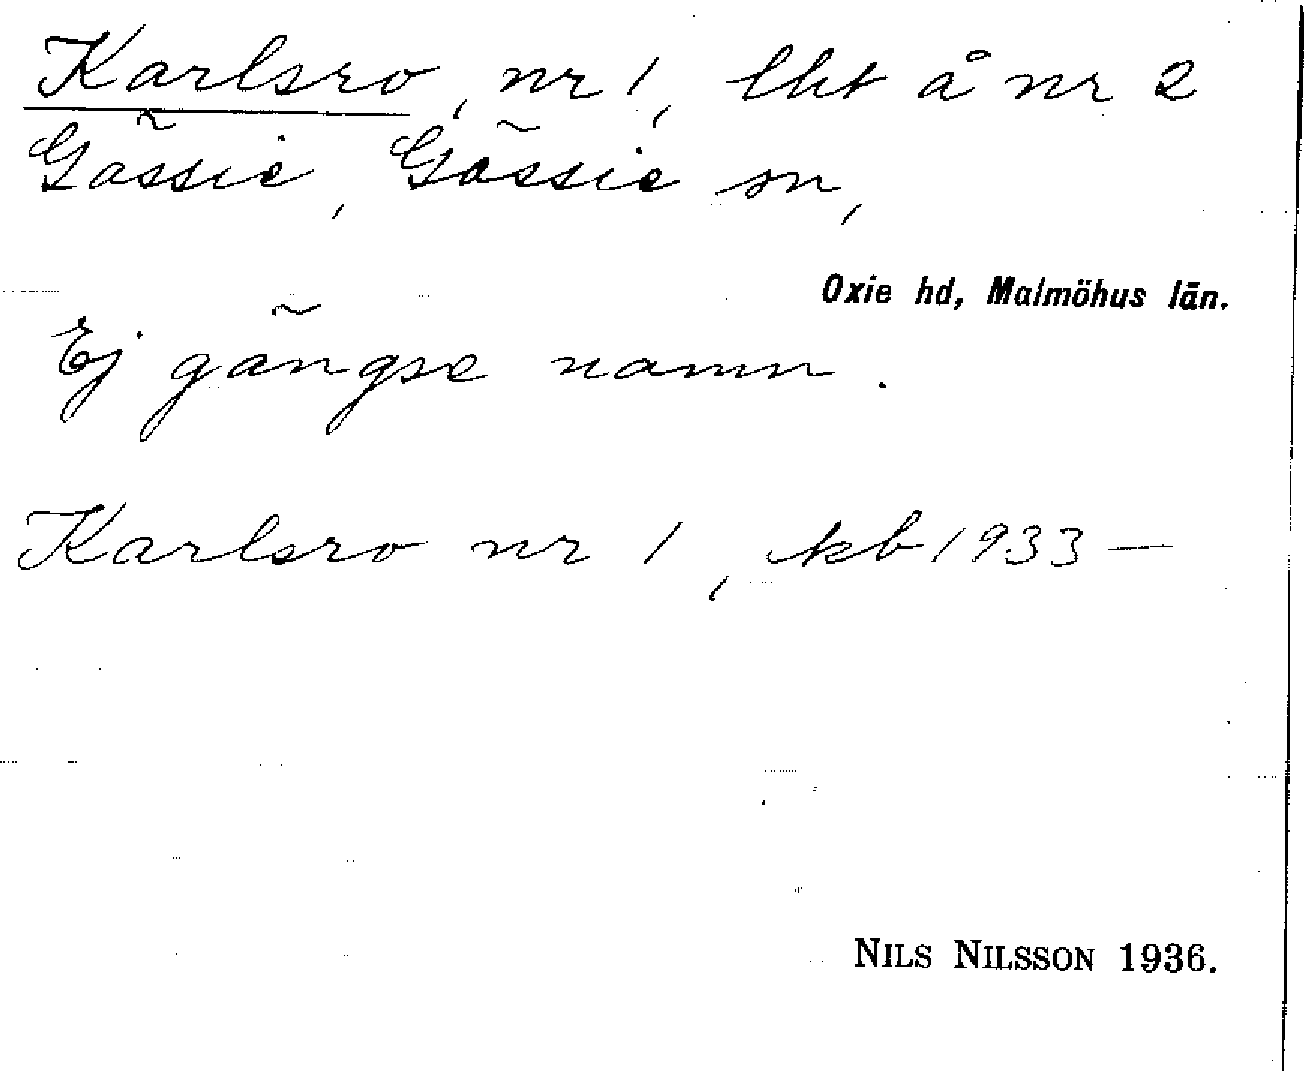 Karlsro, nr 1, lht å nr 2
Gässie, Gässie sn,
Oxie hd, Malmöhus län.
Ej gängse namn.
Karlsro nr 1, kb 1933 —
NILS NILSSON 1936.